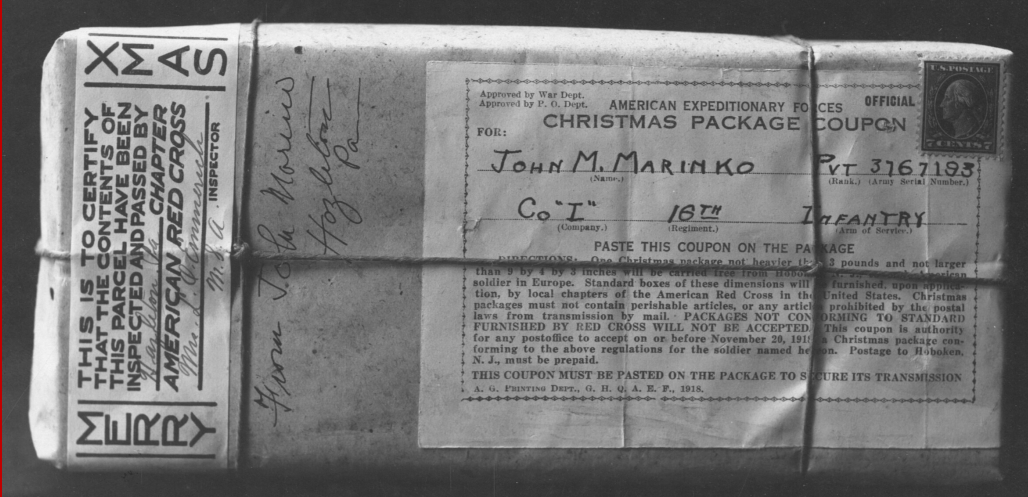 MERRY XMAS
THIS IS TO CERTIFY
THAT THE CONTENTS OF
THIS PARCEL HAVE BEEN
INSPECTED AND PASSED BY
CHAPTER
AMERICAN RED CROSS
INSPECTOR
From
Hazleton
Pa
U.S. POSTAGE
7 CENTS 7
Approved by War Dept.
Approved by P. O. Dept.
AMERICAN EXPEDITIONARY FORCES OFFICIAL
CHRISTMAS PACKAGE COUPON
FOR:
JOHN M. MARINKO PVT 3767193
(Name.) (Rank.) (Army Serial Number.)
Co "I" 16TH INFANTRY
(Company.) (Regiment.) (Arm of Service.)
PASTE THIS COUPON ON THE PACKAGE
DIRECTIONS: One Christmas package not heavier than 3 pounds and not larger
than 9 by 4 by 3 inches will be carried free from Hoboken, American
soldier in Europe. Standard boxes of these dimensions will furnished, upon applica-
tion, by local chapters of the American Red Cross in the United States. Christmas
packages must not contain perishable articles, or any articles prohibited by the postal
laws from transmission by mail. PACKAGES NOT CONFORMING TO STANDARD
FURNISHED BY RED CROSS WILL NOT BE ACCEPTED. This coupon is authority
for any postoffice to accept on or before November 20, 1918 a Christmas package con-
forming to the above regulations for the soldier named hereon. Postage to Hoboken,
N. J., must be prepaid.
THIS COUPON MUST BE PASTED ON THE PACKAGE TO SECURE ITS TRANSMISSION
A. G. PRINTING DEPT., G. H. Q. A. E. F., 1918.